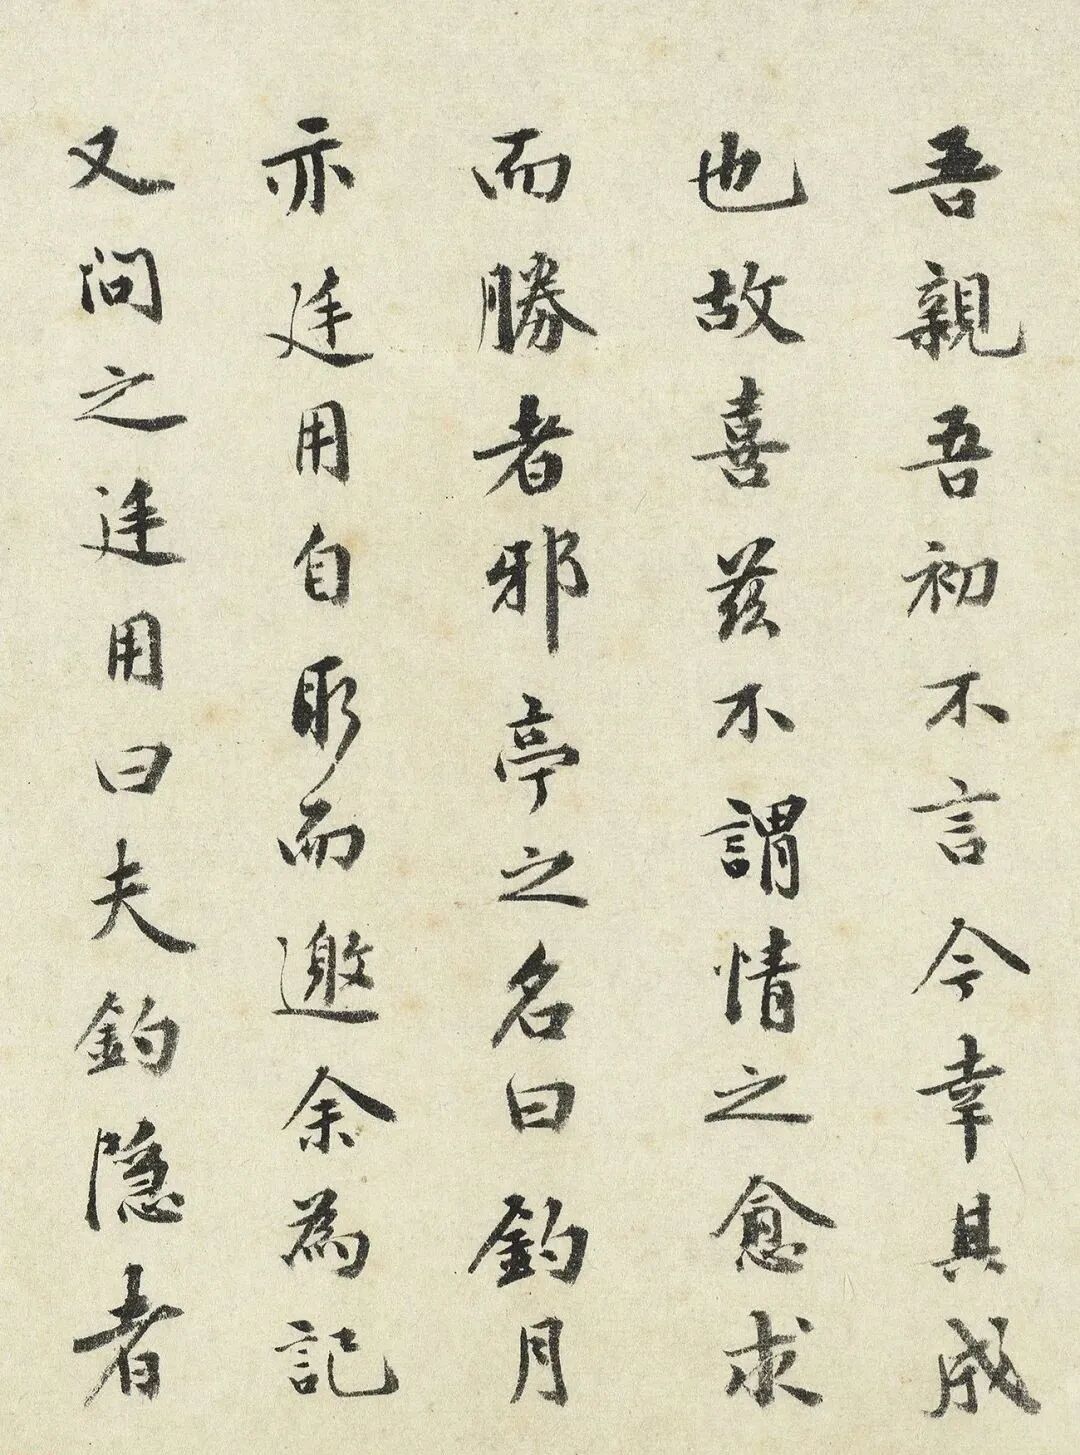 吾親吾初不言今幸具成
也故喜茲不謂情之愈求
而勝者邪亭之名曰釣月
亦廷用自取而邀余為記
又問之廷用曰夫釣隱者